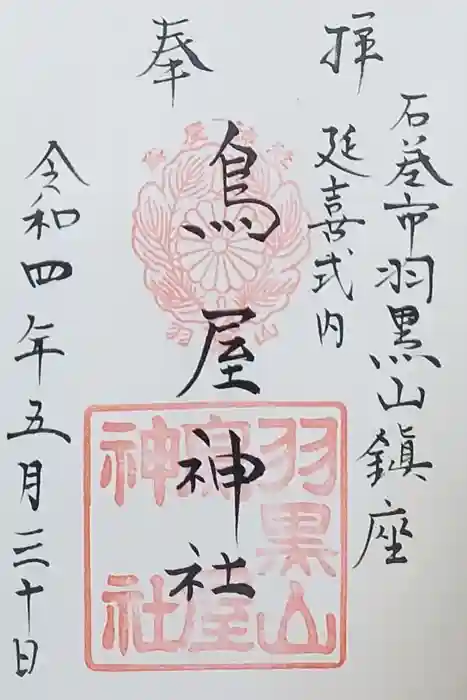 奉拝
石巻市羽黒山鎮座
延喜式内
鳥屋神社
令和四年五月三十日
羽黒山
鳥屋
神社